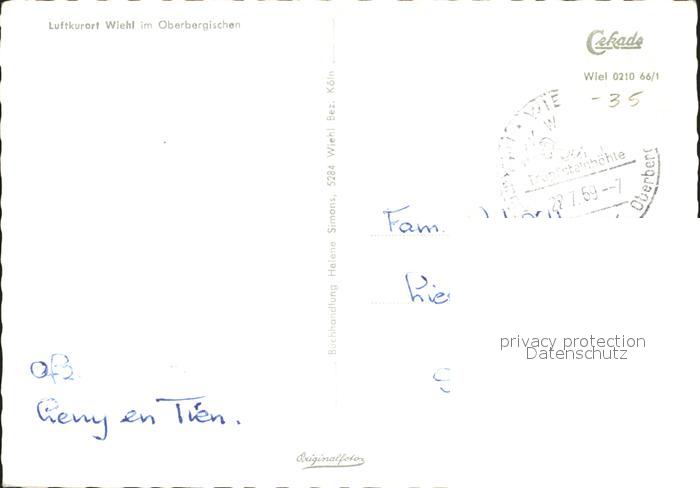 Luftkurort Wiehl im Oberbergischen
Cekade
Wiel 0210 66/1
-35
WIE
Tropfsteinhöhle
22.7.69--7
Oberberg
Buchhandlung Helene Simons, 5284 Wiehl Bez. Köln
Fam.
privacy protection
Datenschutz
afz.
Leny en Tien.
Originalfoto